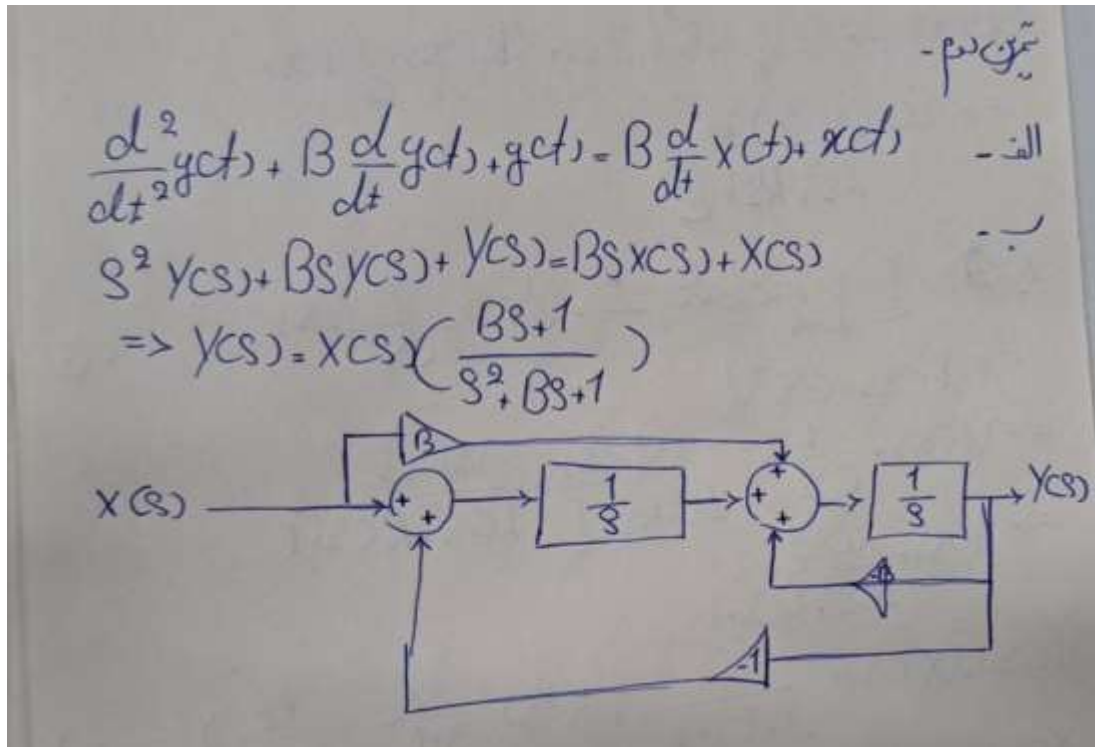 تمرین دوم-
الف- d²/dt² y(t) + B d/dt y(t) + y(t) = B d/dt x(t) + x(t)
ب-
S² Y(S) + BS Y(S) + Y(S) = BS X(S) + X(S)
=> Y(S) = X(S) ( BS+1 / S²+BS+1 )
B
X(S) + + 1/S + + + 1/S Y(S)
-B
-1